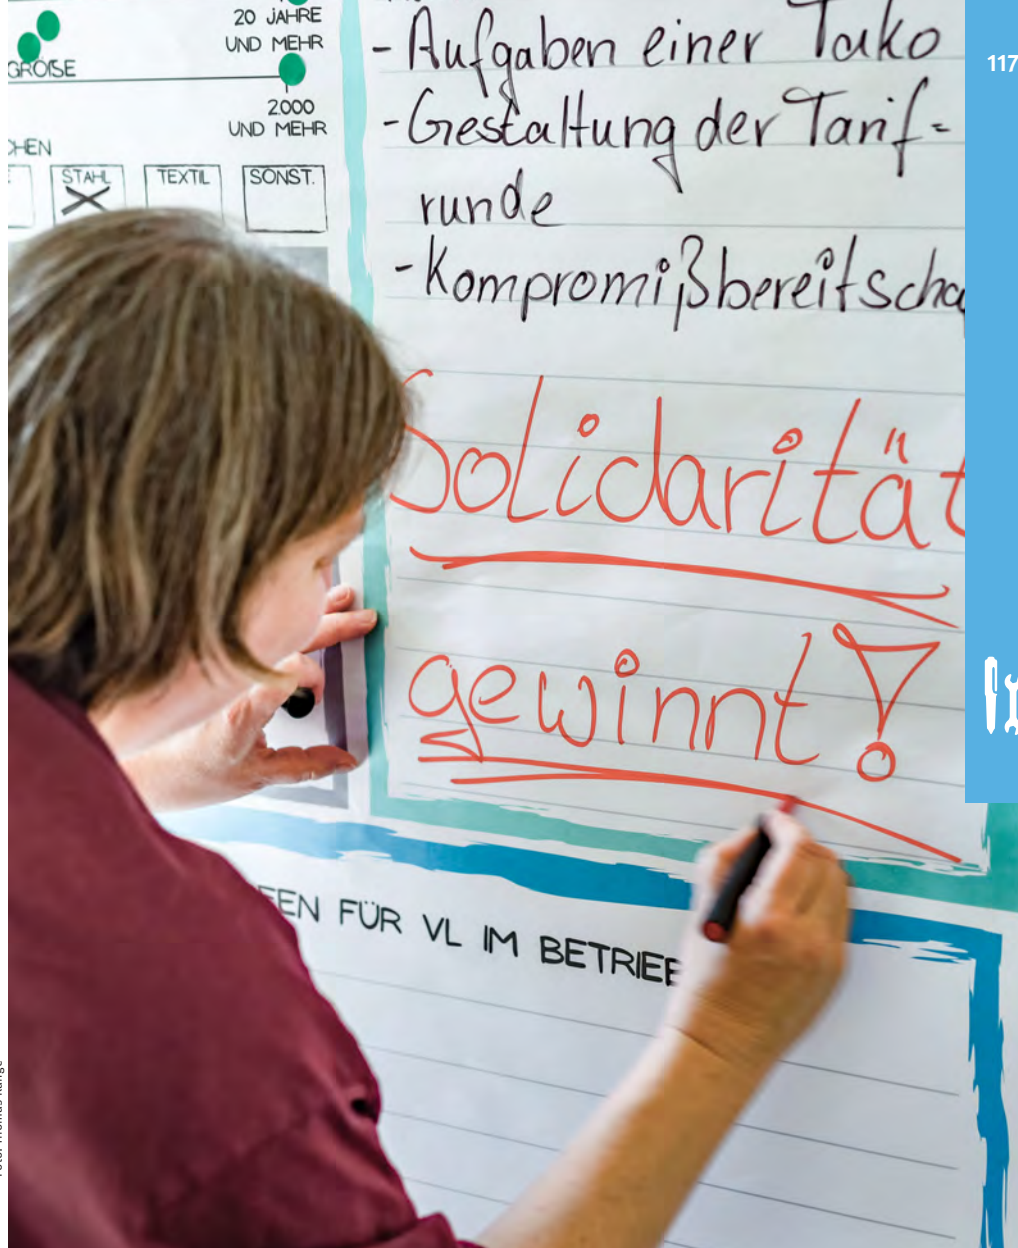 20 JAHRE
UND MEHR
GRÖẞE
2.000
UND MEHR
HEN
STAHL
TEXTIL
SONST.
- Aufgaben einer Tako
- Gestaltung der Tarif-
runde
- Kompromißbereitscha
Solidarität
gewinnt!
EEN FÜR VL IM BETRIEB
117